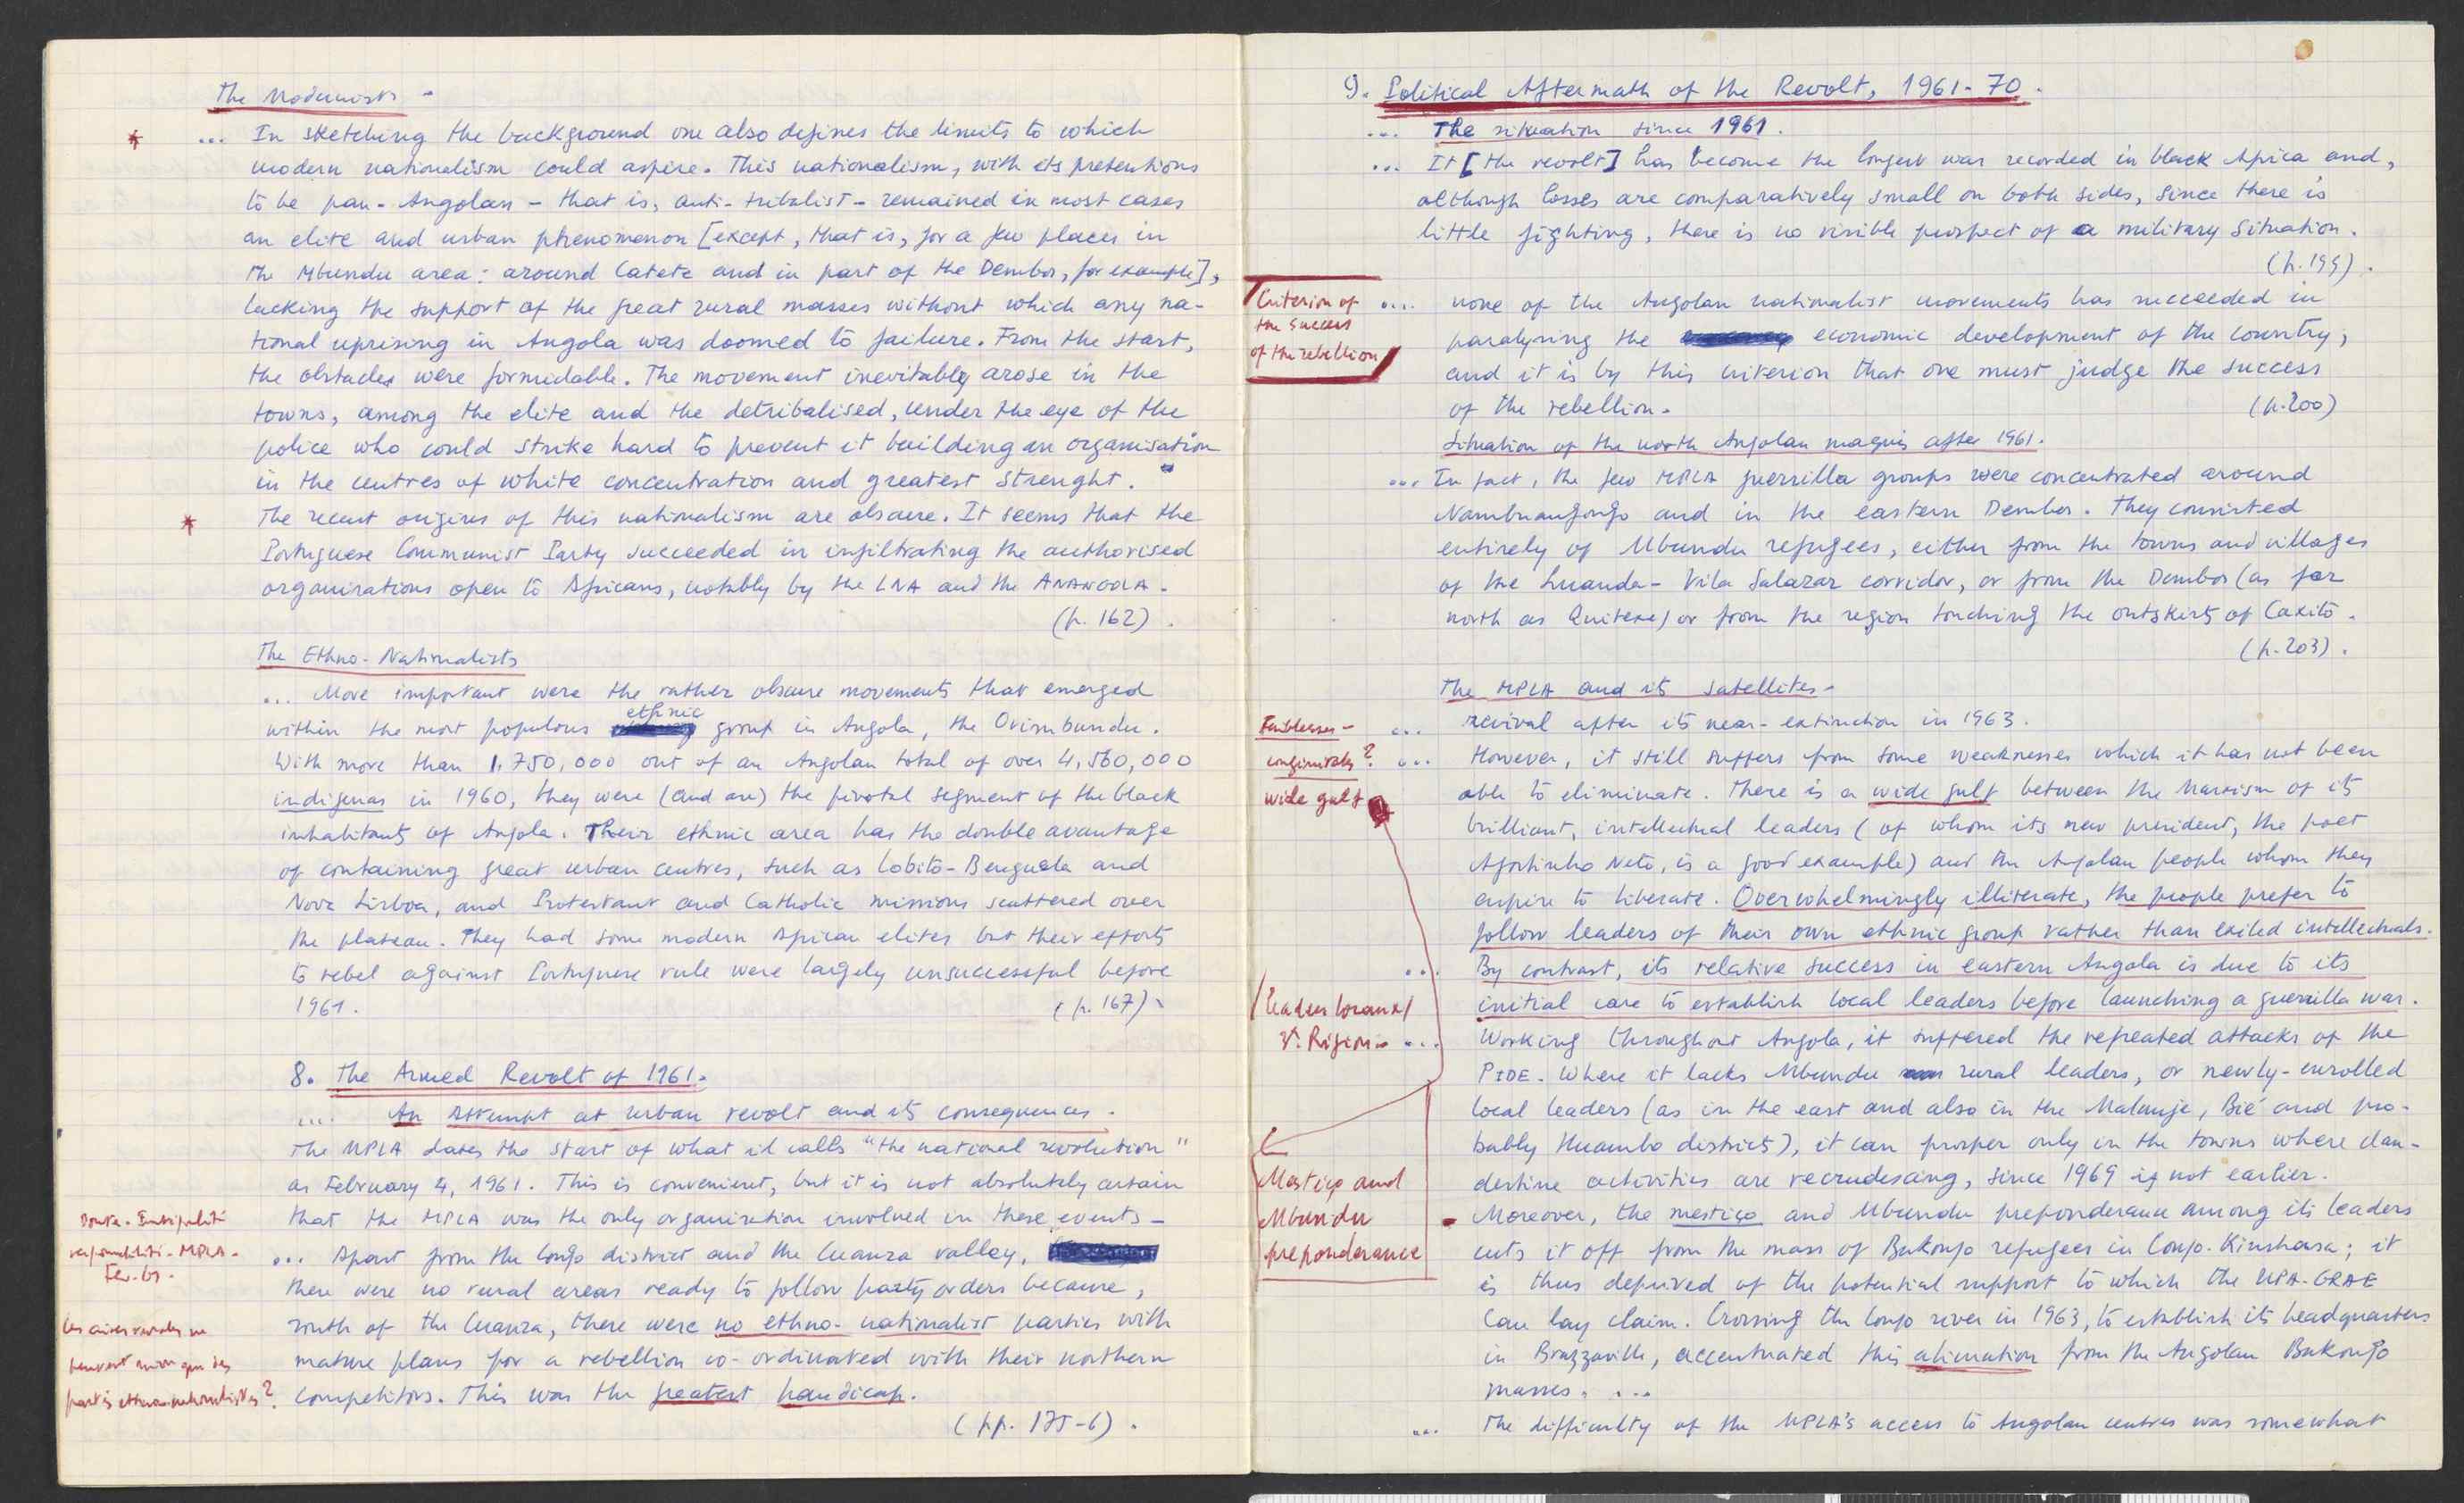 The Modernists -
* ... In sketching the background one also defines the limits to which
modern nationalism could aspire. This nationalism, with its pretentions
to be pan-Angolan - that is, anti-tribalist - remained in most cases
an elite and urban phenomenon [except, that is, for a few places in
the Mbundu area: around Catete and in part of the Dembos, for example],
lacking the support of the great rural masses without which any na-
tional uprising in Angola was doomed to failure. From the start,
the obstacles were formidable. The movement inevitably arose in the
towns, among the elite and the detribalised, under the eye of the
police who could strike hard to prevent it building an organisation
in the centres of white concentration and greatest strenght.
* The recent origins of this nationalism are obscure. It seems that the
Portuguese Communist Party succeeded in infiltrating the authorised
organisations open to Africans, notably by the LNA and the ANANGOLA.
(p. 162).
The Ethno-Nationalists
... More important were the rather obscure movements that emerged
within the most populous ethnic group in Angola, the Ovimbundu.
With more than 1,750,000 out of an Angolan total of over 4,560,000
indigenas in 1960, they were (and are) the pivotal segment of the black
inhabitants of Angola. Their ethnic area has the double avantage
of containing great urban centres, such as Lobito-Benguela and
Nova Lisboa, and Protestant and Catholic missions scattered over
the plateau. They had some modern African elites but their efforts
to rebel against Portuguese rule were largely unsuccessful before
1961. (p. 167).
8. The Armed Revolt of 1961.
... An Attempt at urban revolt and its consequences.
The MPLA dates the start of what it calls "the national revolution"
as February 4, 1961. This is convenient, but it is not absolutely certain
that the MPLA was the only organisation involved in these events -
Doute
responsabilité - MPLA -
Fev. 61 -
... Apart from the Congo district and the Cuanza valley,
there were no rural areas ready to follow party orders because,
south of the Cuanza, there were no ethno-nationalist parties with
mature plans for a rebellion co-ordinated with their northern
competitors. This was the greatest handicap.
Les aires rurales ne
peuvent suivre que des
partis ethno-nationalistes?
(pp. 175-6).
9. Political Aftermath of the Revolt, 1961-70.
... The situation since 1961.
... It [the revolt] has become the longest war recorded in black Africa and,
although losses are comparatively small on both sides, since there is
little fighting, there is no visible prospect of a military situation.
(p. 199).
Criterion of
the success
of the rebellion
... none of the Angolan nationalist movements has succeeded in
paralysing the economic development of the country,
and it is by this criterion that one must judge the success
of the rebellion. (p. 200)
Situation of the north Angolan maquis after 1961.
... In fact, the few MPLA guerrilla groups were concentrated around
Nambuangongo and in the eastern Dembos. They consisted
entirely of Mbundu refugees, either from the towns and villages
of the Luanda-Vila Salazar corridor, or from the Dembos (as far
north as Quitexe) or from the region touching the outskirts of Caxito.
(p. 203).
The MPLA and its satellites -
... revival after its near-extinction in 1963.
Faiblesses -
congénitales?
wide gulf
... However, it still suffers from some weaknesses which it has not been
able to eliminate. There is a wide gulf between the Marxism of its
brilliant, intellectual leaders (of whom its new president, the poet
Agostinho Neto, is a good example) and the Angolan people whom they
aspire to liberate. Overwhelmingly illiterate, the people prefer to
follow leaders of their own ethnic group rather than exiled intellectuals.
... By contrast, its relative success in eastern Angola is due to its
initial care to establish local leaders before launching a guerrilla war.
/Leaders locaux/
3e. Région -
... Working throughout Angola, it suffered the repeated attacks of the
PIDE. Where it lacks Mbundu rural leaders, or newly-enrolled
local leaders (as in the east and also in the Malanje, Bié and pro-
bably Huambo districts), it can prosper only in the towns where clan-
destine activities are recrudescing, since 1969 if not earlier.
Mestiço and
Mbundu
preponderance
Moreover, the mestiço and Mbundu preponderance among its leaders
cuts it off from the mass of Bakongo refugees in Congo-Kinshasa; it
is thus deprived of the potential support to which the UPA-GRAE
can lay claim. Crossing the Congo river in 1963, to establish its headquarters
in Brazzaville, accentuated this alienation from the Angolan Bakongo
masses. ...
... The difficulty of the MPLA's access to Angolan centres was somewhat